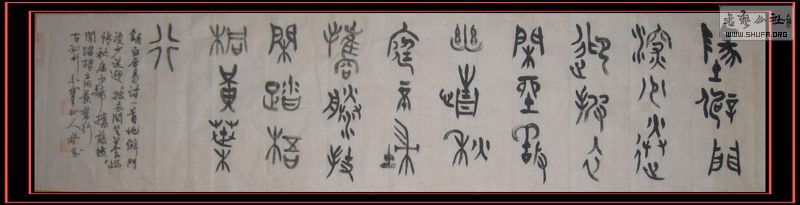 地僻門
深少送
迎披衣
閑坐養
幽情秋
庭不掃
攜藤杖
閑踏梧
桐黃葉
行
錄白居易詩一首地僻門
深少送迎披衣閑坐養幽
情秋庭不掃攜藤杖
閑踏梧桐黃葉行
山人
書藝公社
WWW.SHUFA.ORG